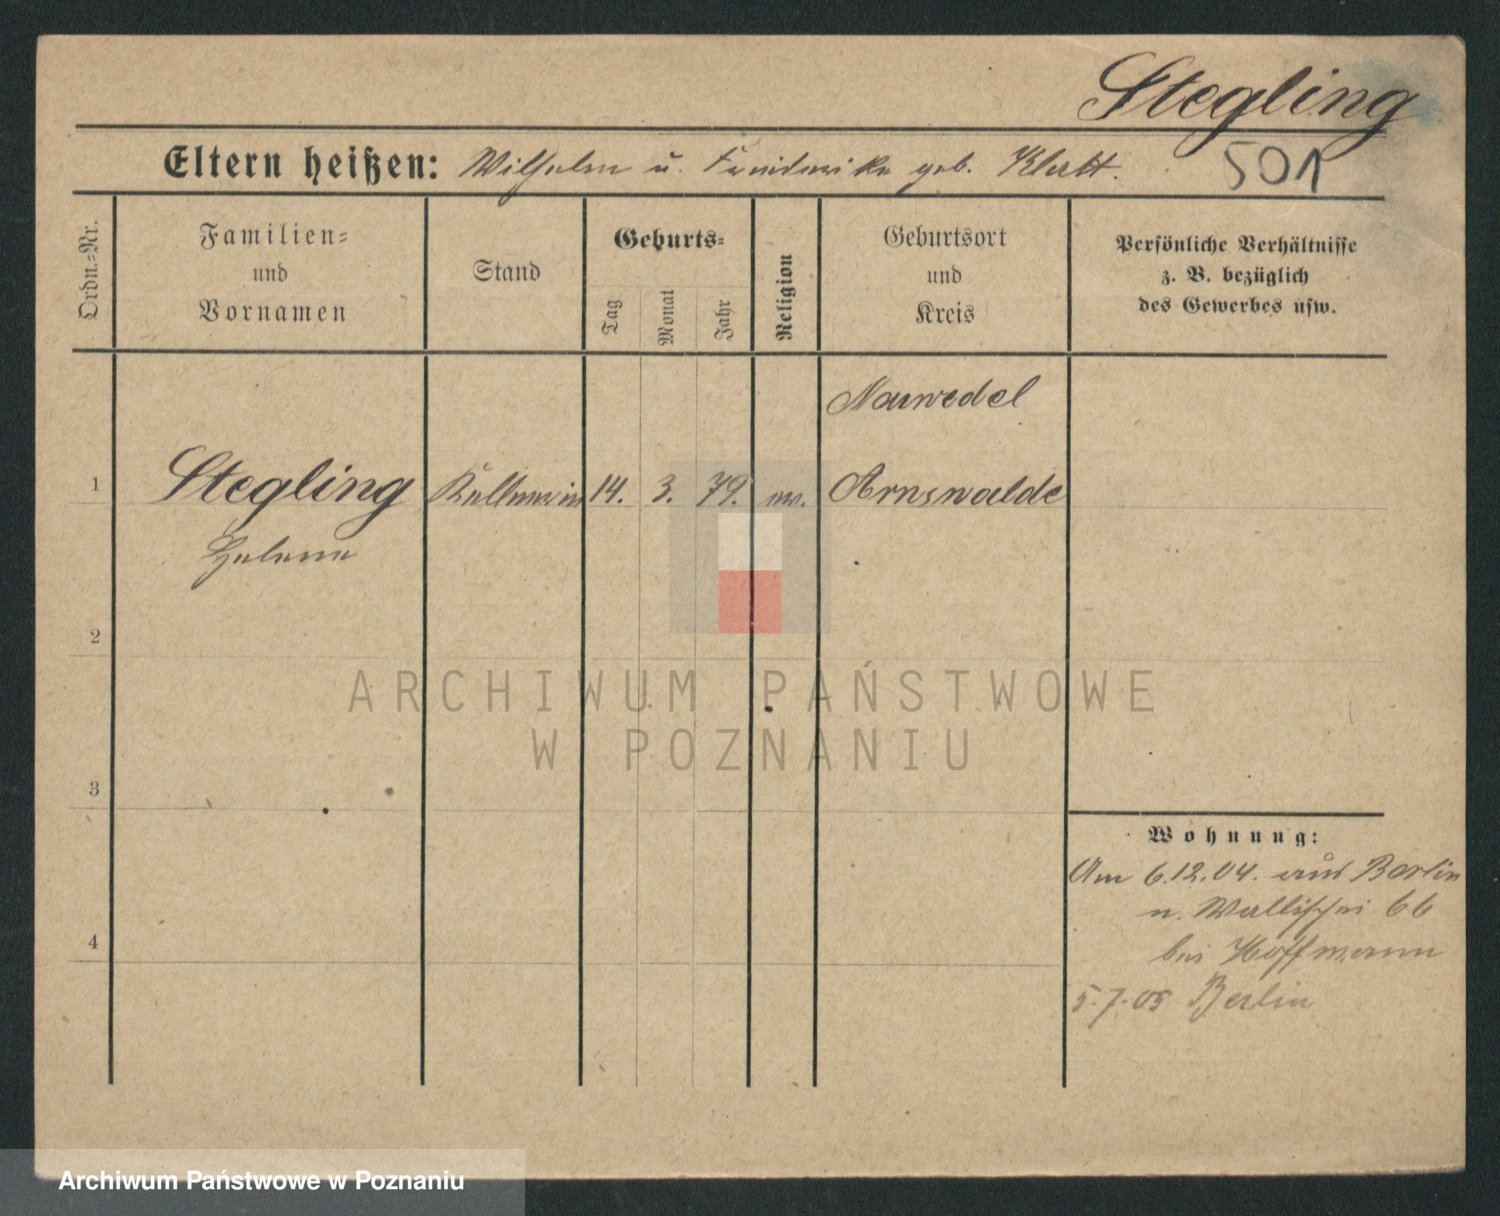 Stegling
Eltern heißen: Wilhelm u. Friederike geb. Klatt.
501
Ordn.=Nr.
Familien=
und
Vornamen
Stand
Geburts=
Tag
Monat
Jahr
Religion
Geburtsort
und
Kreis
Persönliche Verhältnisse
z. B. bezüglich
des Gewerbes usw.
Neuwedel
1 Stegling Kellnerin 14. 3. 79. ev. Arnswalde
Helene
2
ARCHIWUM PAŃSTWOWE
W POZNANIU
3
Wohnung:
Am 6.12.04. aus Berlin
n. Wallischei 66
4
bei Hoffmann
5.7.05 Berlin
Archiwum Państwowe w Poznaniu